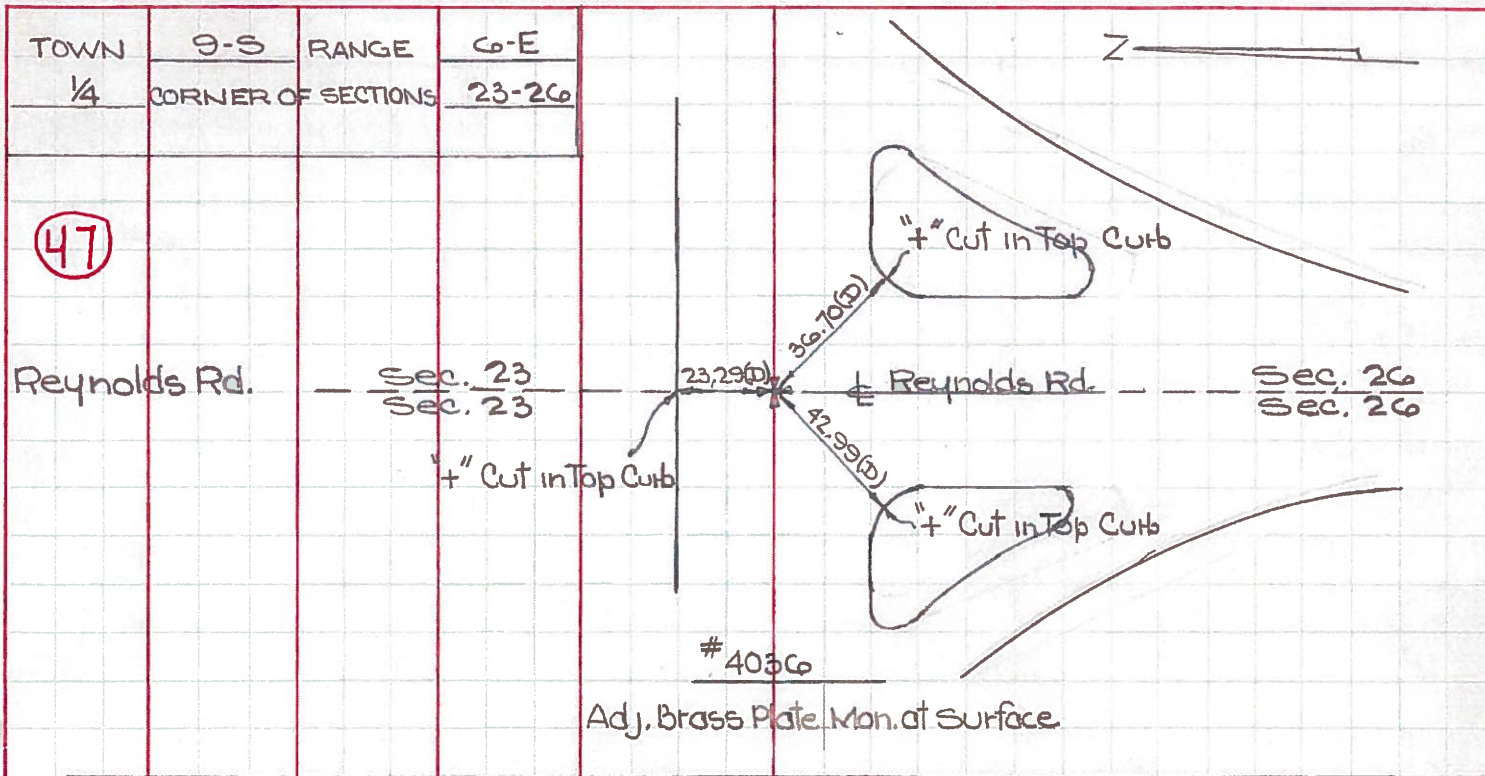 TOWN 9-S RANGE 6-E
1/4 CORNER OF SECTIONS 23-26
Z
47
"+" Cut in Top Curb
36.70(D)
Reynolds Rd. Sec. 23 23,29(D) ℄ Reynolds Rd. Sec. 26
Sec. 23 Sec. 26
42.99(D)
"+" Cut in Top Curb
"+" Cut in Top Curb
#4036
Adj. Brass Plate Mon. at Surface